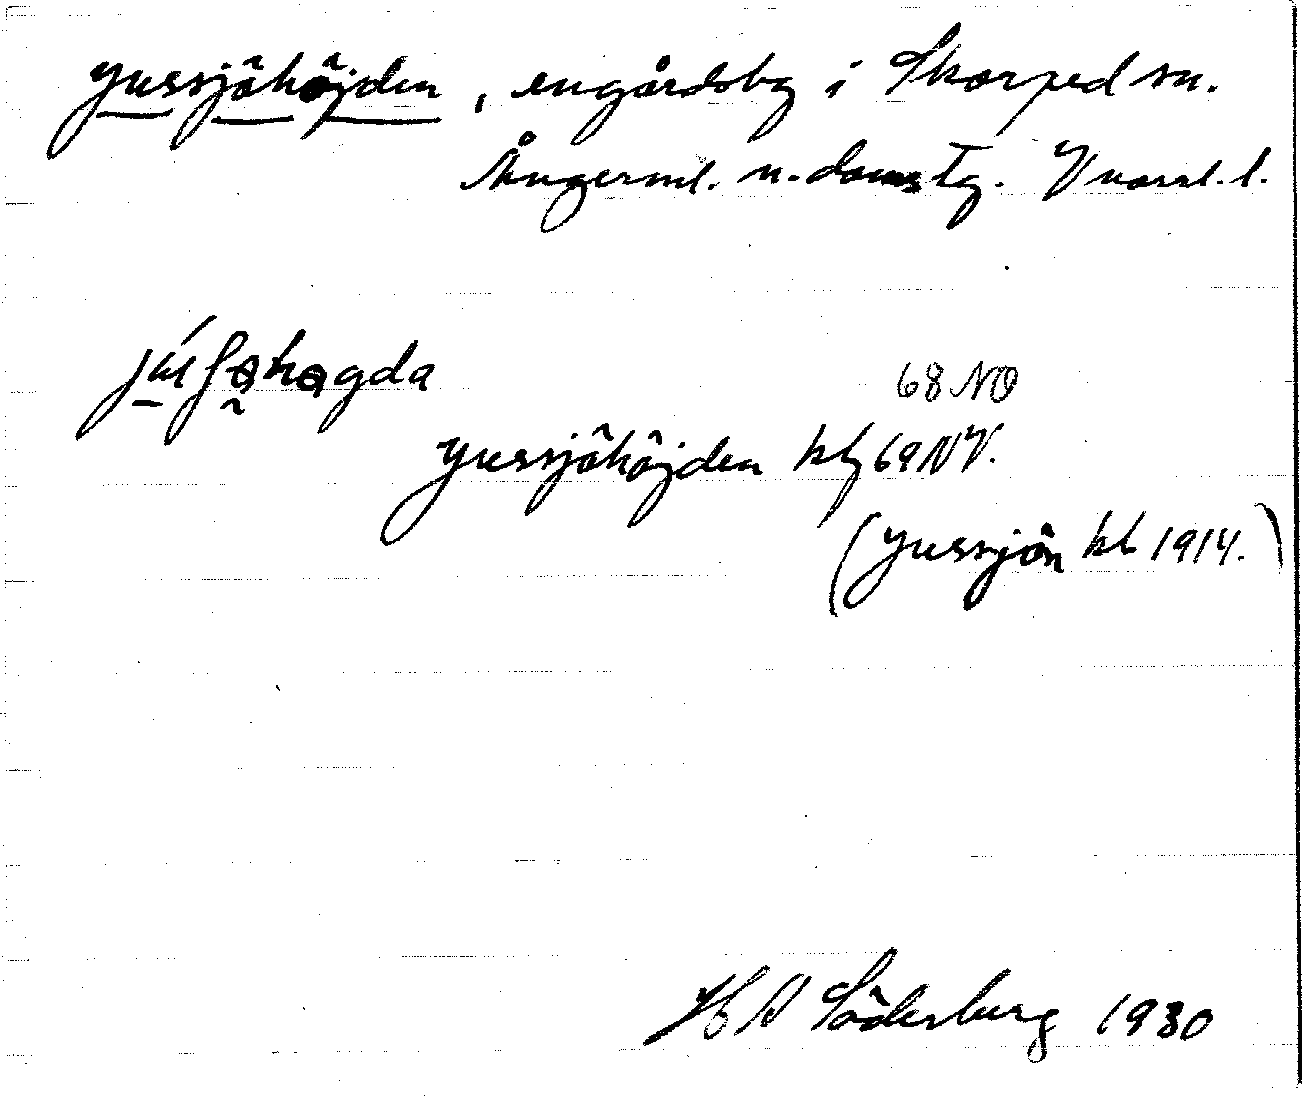 Gussjöhöjden, engårdsby i Skorped sn.
Ångerml. n. doms Tg. Vnorrl. l.
68 NO
Gussjöhöjden kb 69 NV.
(Gussjön kb 1914.)
H W Söderberg 1930